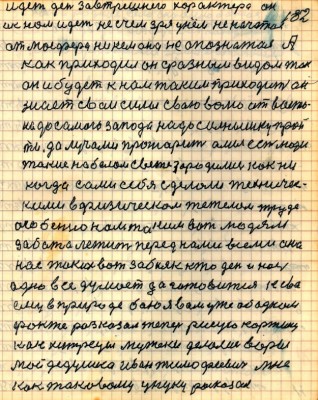 идет ден завтрешнего характера он
182
к ном идет не чем зря у нем не начатая
атмосфера никем оно не опознатая А
как приходил он сразным видом так
он и будет к нам таким приходить он
знает свои силы свою волю от восто
ка до самого запода надо солнышку прой
ти, да лучами пропарит а или ест люди
такие на белом свете зародилис как ни
когда сами себя сделоли техничес-
кими в физическом тяжелом труде
особенно нам таким вот людям
забота летит перед нами всеми она
нас таких вот забияк кто ден и ноч
одно все думает да готовится к сва
ему в природе баю я вам уже об одном
факте розказал тепер рисую картину
как хитрую мужики делали воры
мой дедушка иван тимофеевич мне
как таковому унуку розказал